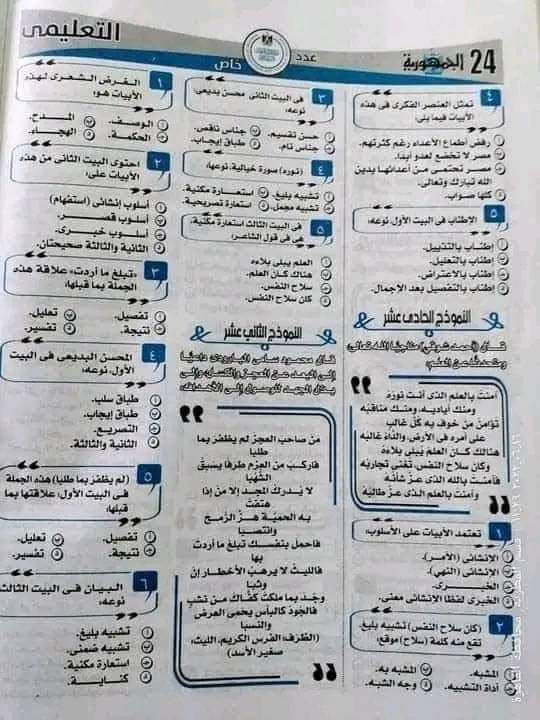 24 الجمهورية
عدد
خاص
التعليمى
٤ تمثل العنصر الفكرى فى هذه
الأبيات فيما يلى:
أ رفض أطماع الأعداء رغم كثرتهم.
ب مصر لا تخضع لعدو أبدا.
ج مصر تحتمى من أعدائها بدين
الله تبارك وتعالى.
د كلها صواب.
٥ الإطناب فى البيت الأول، نوعه:
أ إطناب بالتذييل.
ب إطناب بالتعليل.
ج إطناب بالاعتراض.
د إطناب بالتفصيل بعد الإجمال.
النموذج الحادى عشر
قال (أحمد شوقى) مناجيًا الله تعالى،
ومتحدثًا عن العلم:
آمنت بالعلم الذى أنت نورُهُ
ومنك أياديه، ومنك مناقبُه
تؤامن من خوف به كُلَّ غالبِ
على أمره فى الأرض، والداءُ غالبُه
هنالك كان العلمُ يُبلى بلاءهُ
وكان سلاحَ النفس، تفنى تجاربُه
فآمنت بالله الذى عزَّ شأنُه
وآمنت بالعلم الذى عز طالبُه
١ تعتمد الأبيات على الأسلوب:
أ الإنشائى (الأمر).
ب الإنشائى (النهى).
ج الخبرى.
د الخبرى لفظا الإنشائى معنى.
٢ (كان سلاح النفس) تشبيه بليغ،
تقع منه كلمة (سلاح) موقع:
أ المشبه.
ب المشبه به.
ج أداة التشبيه.
د وجه الشبه.
٣ فى البيت الثانى محسن بديعى،
نوعه:
أ حسن تقسيم.
ب جناس ناقص.
ج جناس تام.
د طباق إيجاب.
٤ (نوره) صورة خيالية، نوعها:
أ تشبيه بليغ.
ب استعارة مكنية.
ج تشبيه مجمل.
د استعارة تصريحية.
٥ فى البيت الثالث استعارة مكنية،
هى فى قول الشاعر:
أ العلم يبلى بلاءه
ب هنالك كان العلم.
ج سلاح النفس.
د كان سلاح النفس.
النموذج الثانى عشر
قال محمود سامى البارودى داعيًا
إلى البعد عن العجز والكسل وإلى
بذل الجهد للوصول إلى الأهداف:
من صاحب العجز لم يظفر بما
طلبا
فاركب من العزم طرفا يسبق
الشُهُبا
لا يُدرك المجد إلا من إذا
هتفت
به الحمِيّة هزّ الرُمح
وانتصبا
فاحمل بنفسك تبلغ ما أردت
بها
فالليثُ لا يرهبُ الأخطار إن
وثبا
وجُد بما ملكت كفَّاك من نشبٍ
فالجُود كالبأس يحمى العرض
والنسبا
(الطّرف: الفرس الكريم، الليث:
صغير الأسد)
١ الغرض الشعرى لهذه
الأبيات هو:
أ الوصف.
ب المدح.
ج الحكمة.
د الهجاء.
٢ احتوى البيت الثانى من هذه
الأبيات على:
أ أسلوب إنشائى (استفهام)
ب أسلوب قصر.
ج أسلوب خبرى.
د الثانية والثالثة صحيحتان.
٣ «تبلغ ما أردت» علاقة هذه
الجملة بما قبلها:
أ تفصيل.
ب تعليل.
ج نتيجة.
د تفسير.
٤ المحسن البديعى فى البيت
الأول، نوعه:
أ طباق سلب.
ب طباق إيجاب.
ج التصريع.
د الثانية والثالثة.
٥ (لم يظفر بما طلبا) هذه الجملة
فى البيت الأول، علاقتها بما
قبلها:
أ تفصيل.
ب تعليل.
ج نتيجة.
د تفسير.
٦ البيان فى البيت الثالث
نوعه:
أ تشبيه بليغ.
ب تشبيه ضمنى.
ج استعارة مكنية.
د كناية.